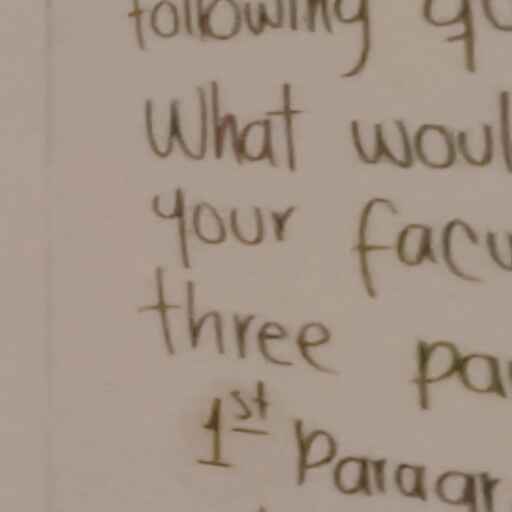 following qu
What woul
your facu
three pa
1st Paragr